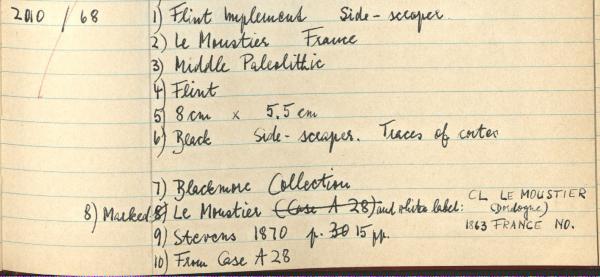 2010 / 68 1) Flint Implement Side-scraper.
2) Le Moustier France
3) Middle Paleolithic
4) Flint
5) 8 cm x 5.5 cm
6) Black Side-scraper. Traces of cortex
7) Blackmore Collection
8) Marked: 8) Le Moustier (Case A 28) and white label: CL LE MOUSTIER
(Dordogne)
1863 FRANCE NO.
9) Stevens 1870 p. 30 15 pp.
10) From Case A 28